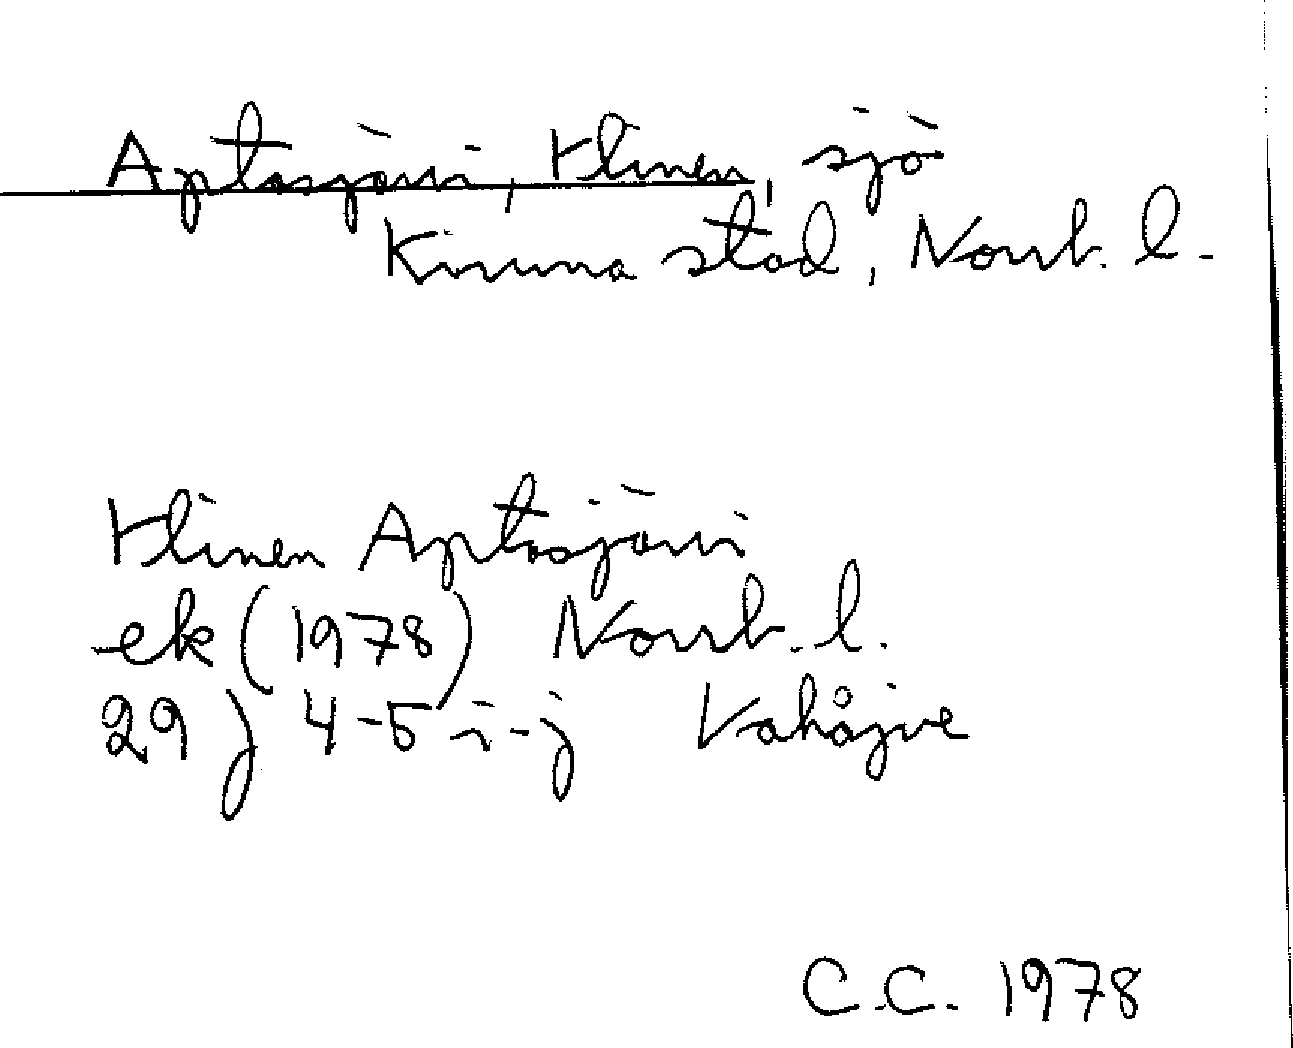 Aptasjärvi, Hlinen, sjö
Kiruna stad, Norrb. l.
Hlinen Aptasjärvi
ek (1978) Norrb. l.
29 J 4-5 i-j Vahåjve
C.C. 1978